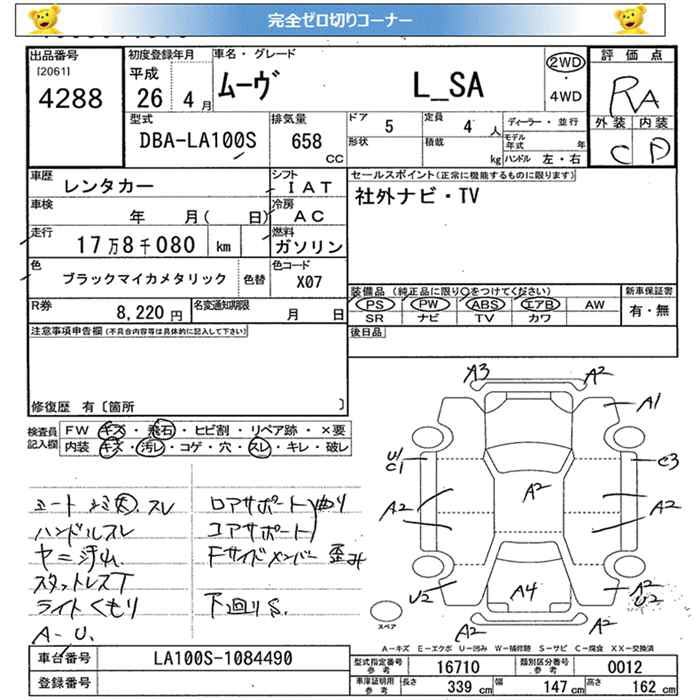 完全ゼロ切りコーナー
出品番号
[2061]
4288
初度登録年月
平成
26年 4月
車名・グレード
ムーヴ L_SA
2WD
・
4WD
評価点
RA
外装 内装
C D
型式
DBA-LA100S
排気量
658
CC
ドア 5
形状
定員 4 人
積載 kg
ディーラー・並行
モデル年式 年
ハンドル 左・右
車歴 レンタカー
シフト IAT
車検 年 月( 日)
冷房 AC
走行 17万8千080 km
燃料 ガソリン
色 ブラックマイカメタリック 色替
色コード X07
R券 8,220円
名変通知期限 月 日
セールスポイント(正常に機能するものに限ります)
社外ナビ・TV
装備品 (純正品に限り○をつけてください)
PS PW ABS エアB AW
SR ナビ TV カワ
新車保証書
有・無
後日品
注意事項申告欄(不具合内容等は具体的に記入して下さい)
修復歴 有〔箇所 〕
検査員記入欄
FW キズ・飛石・ヒビ割・リペア跡・×要
内装 キズ・汚レ・コゲ・穴・スレ・キレ・破レ
シミ 大 スレ
ハンドルスレ
ヤニ汚れ
スタットレスT
ライトくもり
A-U.
ロアサポート
コアサポート
Fサイドメンバー 歪み
下回りS.
A3 A2
A1
U1
C1
C3
A2 A2 A2
U2 A4 A2
U2
A2 A2
スペア
A-キズ E-エクボ U-凹み W-補修跡 S-サビ C-腐食 XX-交換済
車台番号 LA100S-1084490
登録番号
型式指定番号 参考 16710
類別区分番号 参考 0012
車庫証明用 参考 長さ 339 cm 幅 147 cm 高さ 162 cm